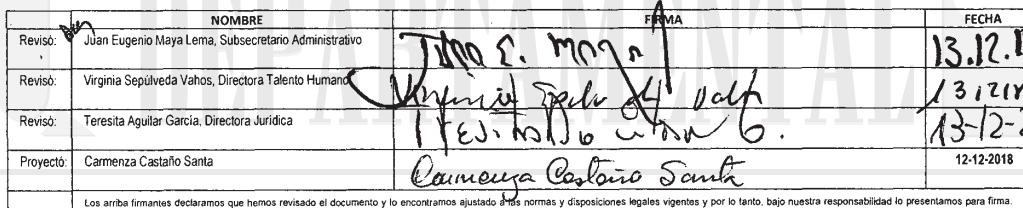 DEPARTAMENTAL
NOMBRE FIRMA FECHA
Revisó: Juan Eugenio Maya Lema, Subsecretario Administrativo Juan E. Maya 13.12.
Revisó: Virginia Sepúlveda Vahos, Directora Talento Humano Virginia
Revisó: Teresita Aguilar García, Directora Jurídica Teresita 13-12-
Proyectó: Carmenza Castaño Santa Carmenza Castaño Santa 12-12-2018
Los arriba firmantes declaramos que hemos revisado el documento y lo encontramos ajustado a las normas y disposiciones legales vigentes y por lo tanto, bajo nuestra responsabilidad lo presentamos para firma.